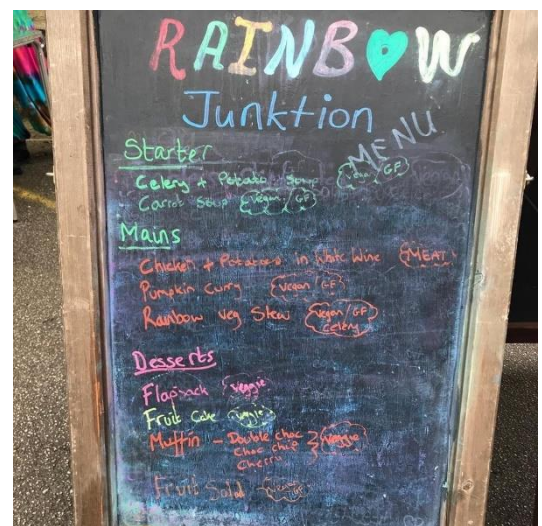 RAINBOW
Junktion
MENU
Starter
Celery + Potato Soup Vegan/GF
Carrot Soup Vegan/GF
Mains
Chicken + Potatoes in White Wine MEAT
Pumpkin Curry Vegan/GF
Rainbow Veg Stew Vegan/GF
Celery
Desserts
Flapjack Veggie
Fruit Cake Veggie
Muffin - Double choc Veggie
Choc chip
Cherry
Fruit Salad